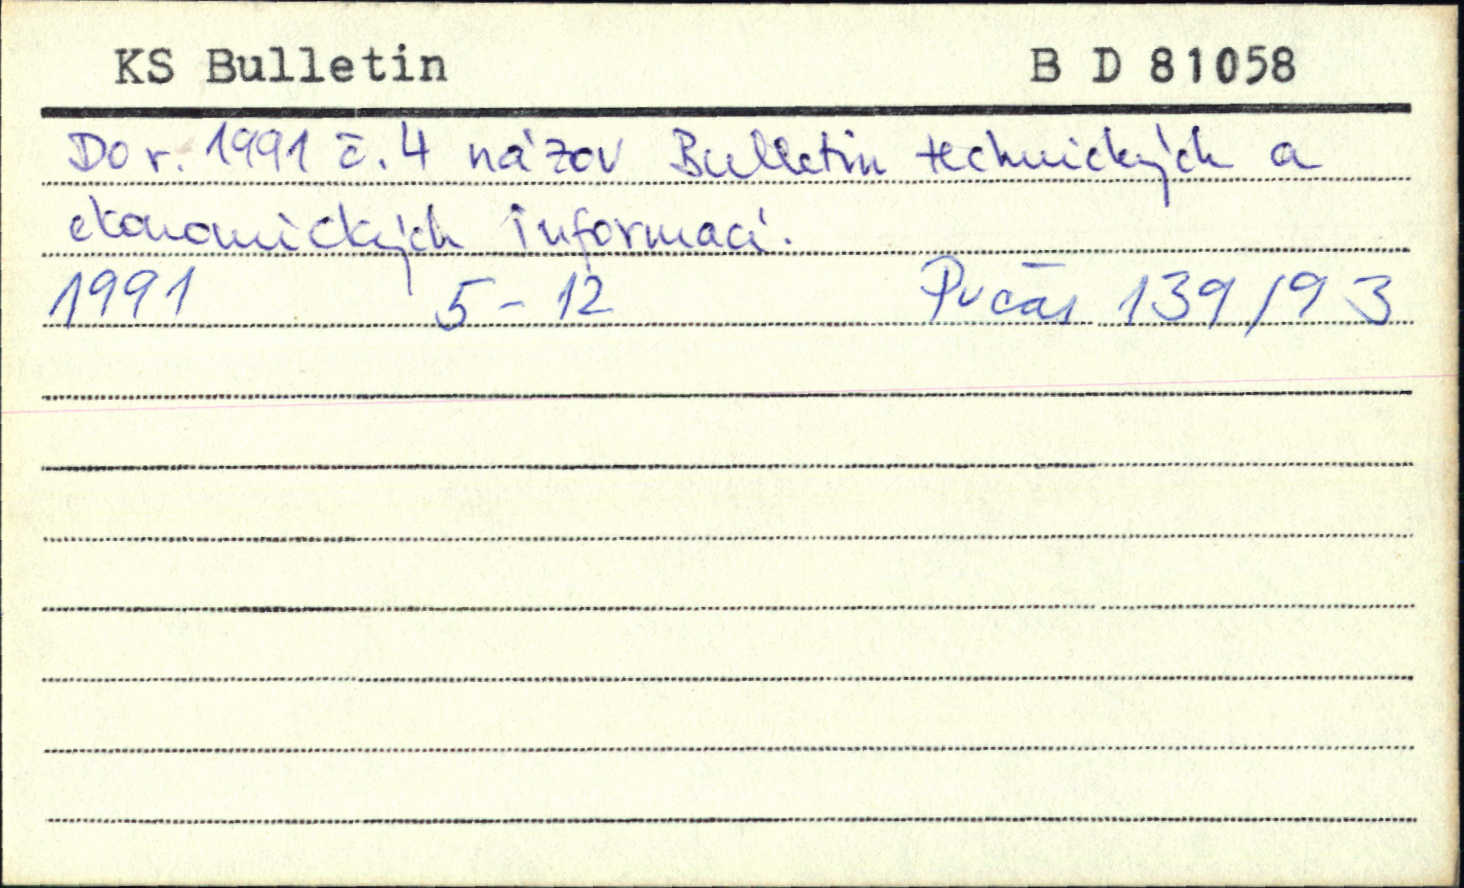 KS Bulletin B D 81058
Do r. 1991 č. 4 názov Bulletin technických a
ekonomických informací.
1991 5-12 Pučás 139/93